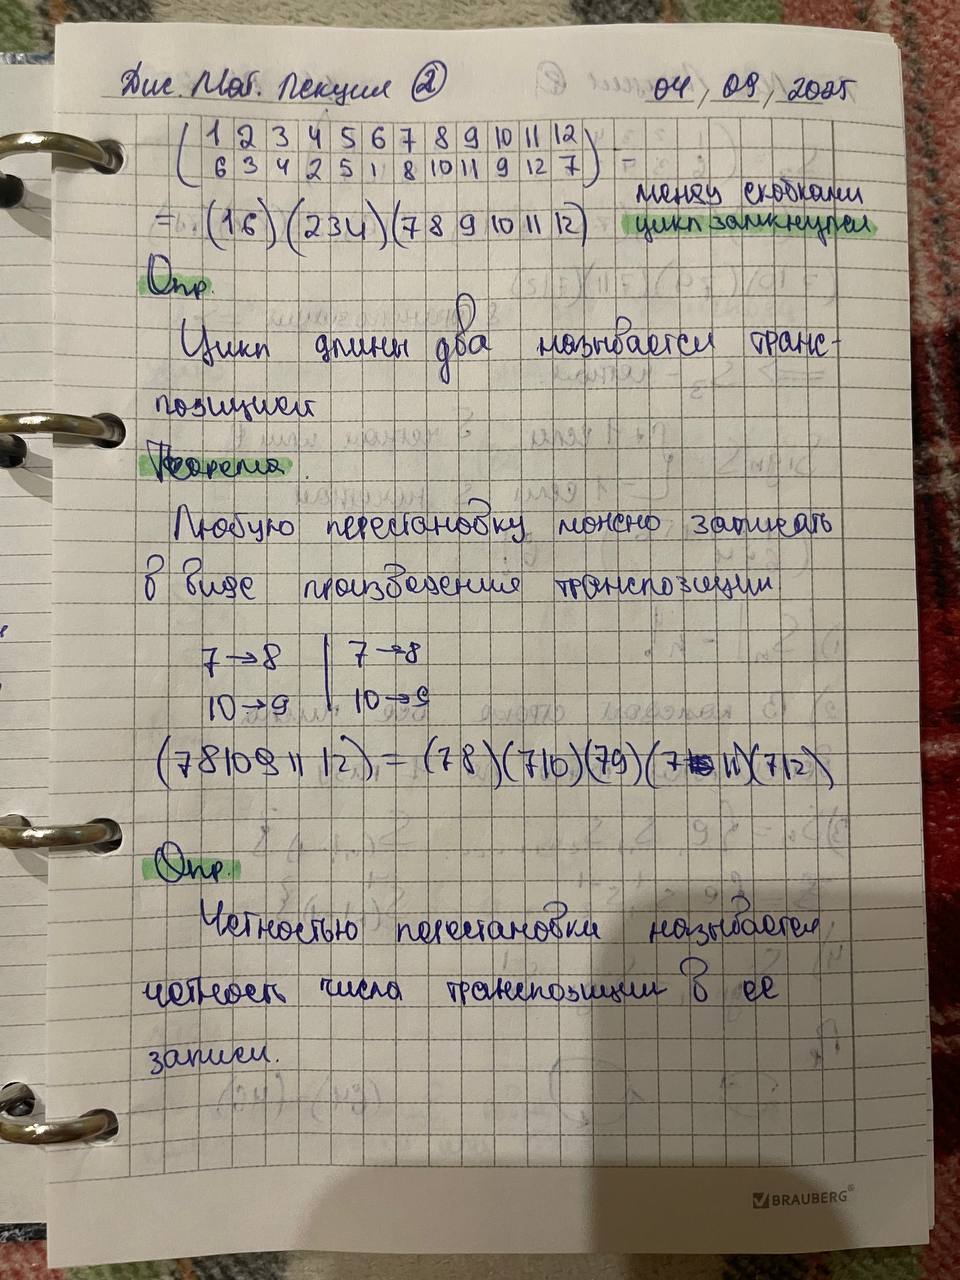 Дис. Мат. Лекция ② 04, 09, 2025
( 1 2 3 4 5 6 7 8 9 10 11 12
6 3 4 2 5 1 8 10 11 9 12 7 ) =
= (16)(234)(7 8 9 10 11 12) между скобками
цикл замкнулся
Опр.
Цикл длины два называется транс-
позицией
Теорема
Любую перестановку можно записать
в виде произведения транспозиции
7→8 | 7→8
10→9 | 10→9
(78109 11 12) = (78)(710)(79)(7 11)(712)
Опр.
Четностью перестановки называется
четность числа транспозиции в ее
записи.
BRAUBERG®